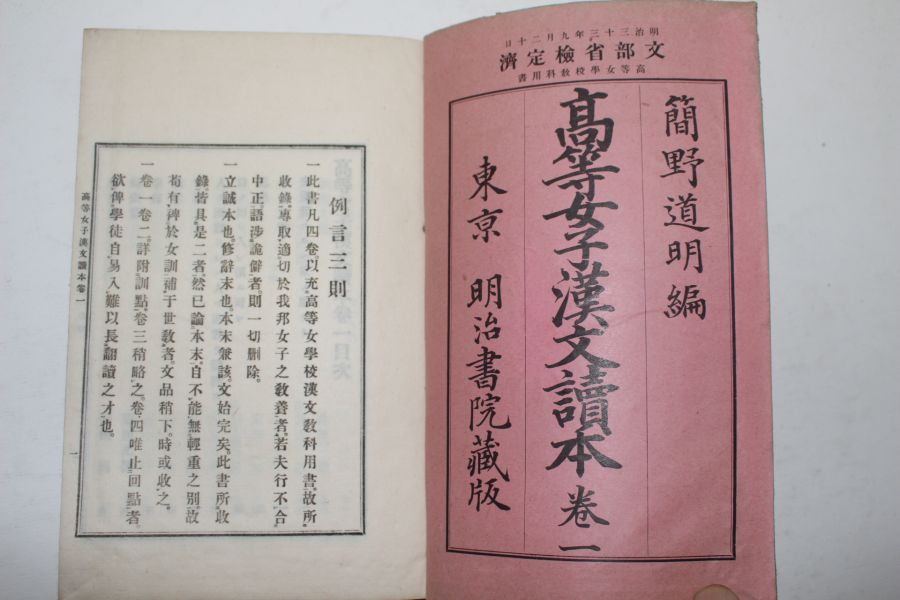 明治三十三年九月二十日
文部省檢定濟
高等女學校教科用書
簡野道明編
高等女子漢文讀本 卷一
東京 明治書院藏版
例言三則
一此書凡四卷。以充高等女學校漢文教科用書。故所
收錄。專取適切於我邦女子之教養者。若夫行不合
中正。語涉詭僻者。則一切刪除。
一立誠本也。修辭末也。本末兼該。文始完矣。此書所收
錄。皆具是二者。然已論本末。自不能無輕重之別。故
苟有裨於女訓。補于世教者。文品稍下。時或收之。
一卷一卷二。詳附訓點。卷三稍略之。卷四唯止回點者。
欲俾學徒自易入難以長翻讀之才也。
高等女子漢文讀本卷一
一